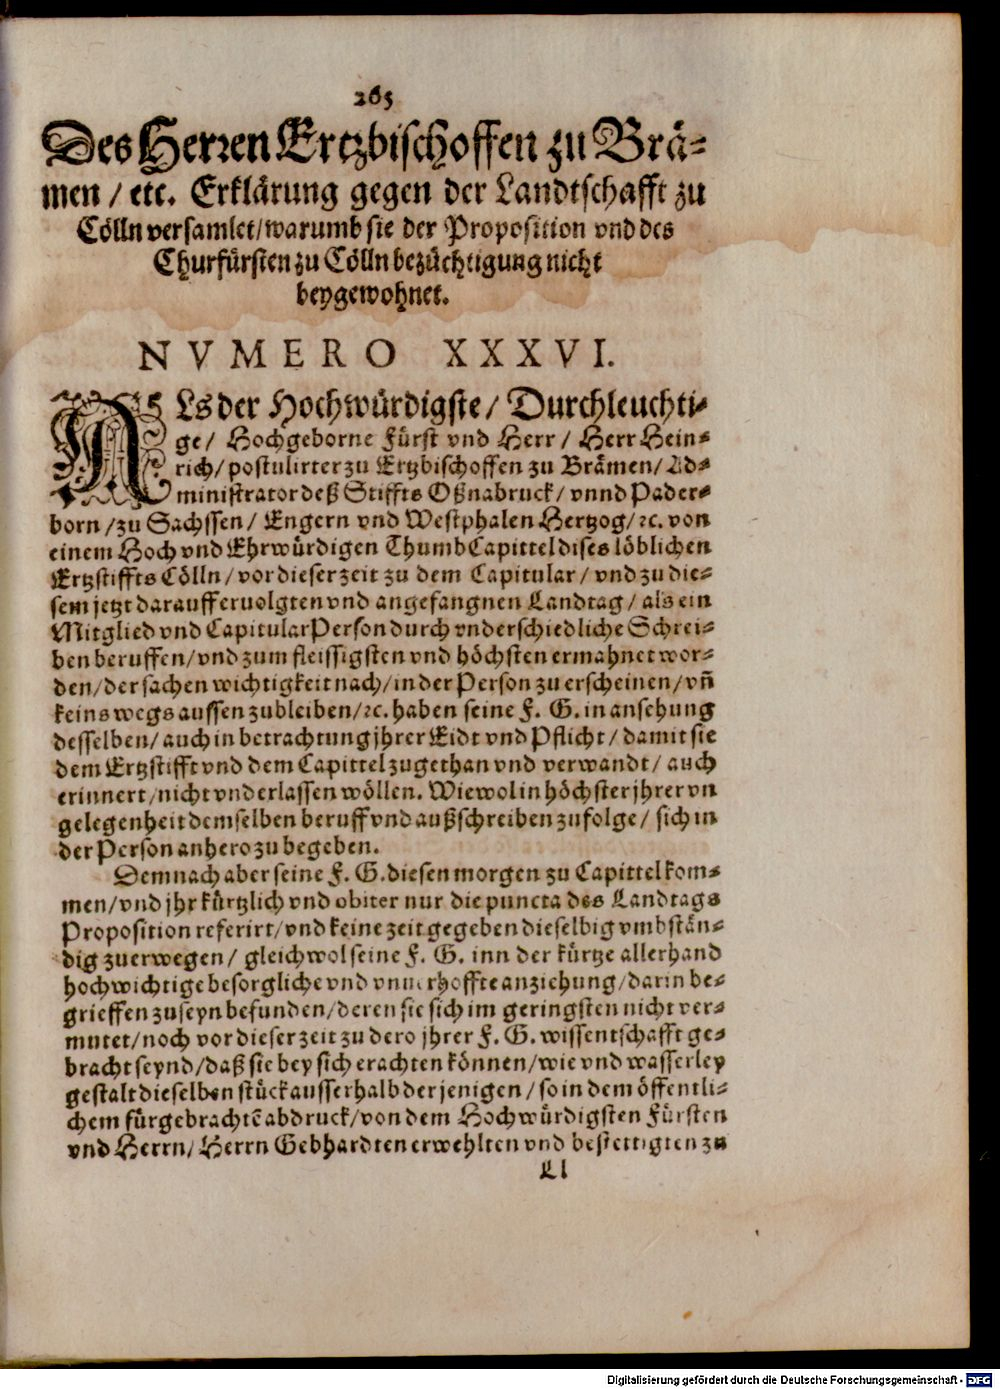 265
Des Herren Ertzbischoffen zu Brä-
men / etc. Erklärung gegen der Landtschafft zu
Cölln versamlet/warumb sie der Proposition vnd des
Churfürsten zu Cölln bezüchtigung nicht
beygewohnet.
NVMERO XXXVI.
ALs der Hochwürdigste/ Durchleuchti-
ge/ Hochgeborne Fürst vnd Herr/ Herr Hein-
rich/ postulirter zu Ertzbischoffen zu Brämen/ Ad-
ministrator deß Stiffts Oßnabruck/ vnnd Pader-
born/zu Sachssen/ Engern vnd Westphalen Hertzog/ꝛc. von
einem Hoch vnd Ehrwürdigen ThumbCapittel dises löblichen
Ertzstiffts Cölln/ vor dieser zeit zu dem Capitular/ vnd zu die-
sem jetzt darauff eruolgten vnd angefangnen Landtag/ als ein
Mitglied vnd CapitularPerson durch vnderschiedliche Schrei-
ben beruffen/vnd zum fleissigsten vnd höchsten ermahnet wor-
den/der sachen wichtigkeit nach/in der Person zu erscheinen/vñ
keins wegs aussen zubleiben/ꝛc. haben seine F. G. in ansehung
desselben/ auch in betrachtung jhrer Eidt vnd Pflicht/ damit sie
dem Ertzstifft vnd dem Capittel zugethan vnd verwandt/ auch
erinnert/nicht vnderlassen wöllen. Wiewol in höchster jhrer vn
gelegenheit demselben beruff vnd außschreiben zufolge/ sich in
der Person anhero zu begeben.
Demnach aber seine F. G. diesen morgen zu Capittel kom-
men/vnd jhr kürtzlich vnd obiter nur die puncta des Landtags
Proposition referirt/vnd keine zeit gegeben dieselbig vmbstän-
dig zuerwegen/ gleichwol seine F. G. inn der kürtze allerhand
hochwichtige besorgliche vnd vnuerhoffte anziehung/darin be-
grieffen zuseyn befunden/deren sie sich im geringsten nicht ver-
mutet/noch vor dieser zeit zu dero jhrer F. G. wissentschafft ge-
bracht seynd/daß sie bey sich erachten können/wie vnd wasserley
gestalt dieselben stück ausserhalb derjenigen/ so in dem öffentli-
chem fürgebrachtē abdruck/von dem Hochwürdigsten Fürsten
vnd Herrn/ Herrn Gebhardten erwehlten vnd bestettigten zu
Ll
Digitalisierung gefördert durch die Deutsche Forschungsgemeinschaft - DFG